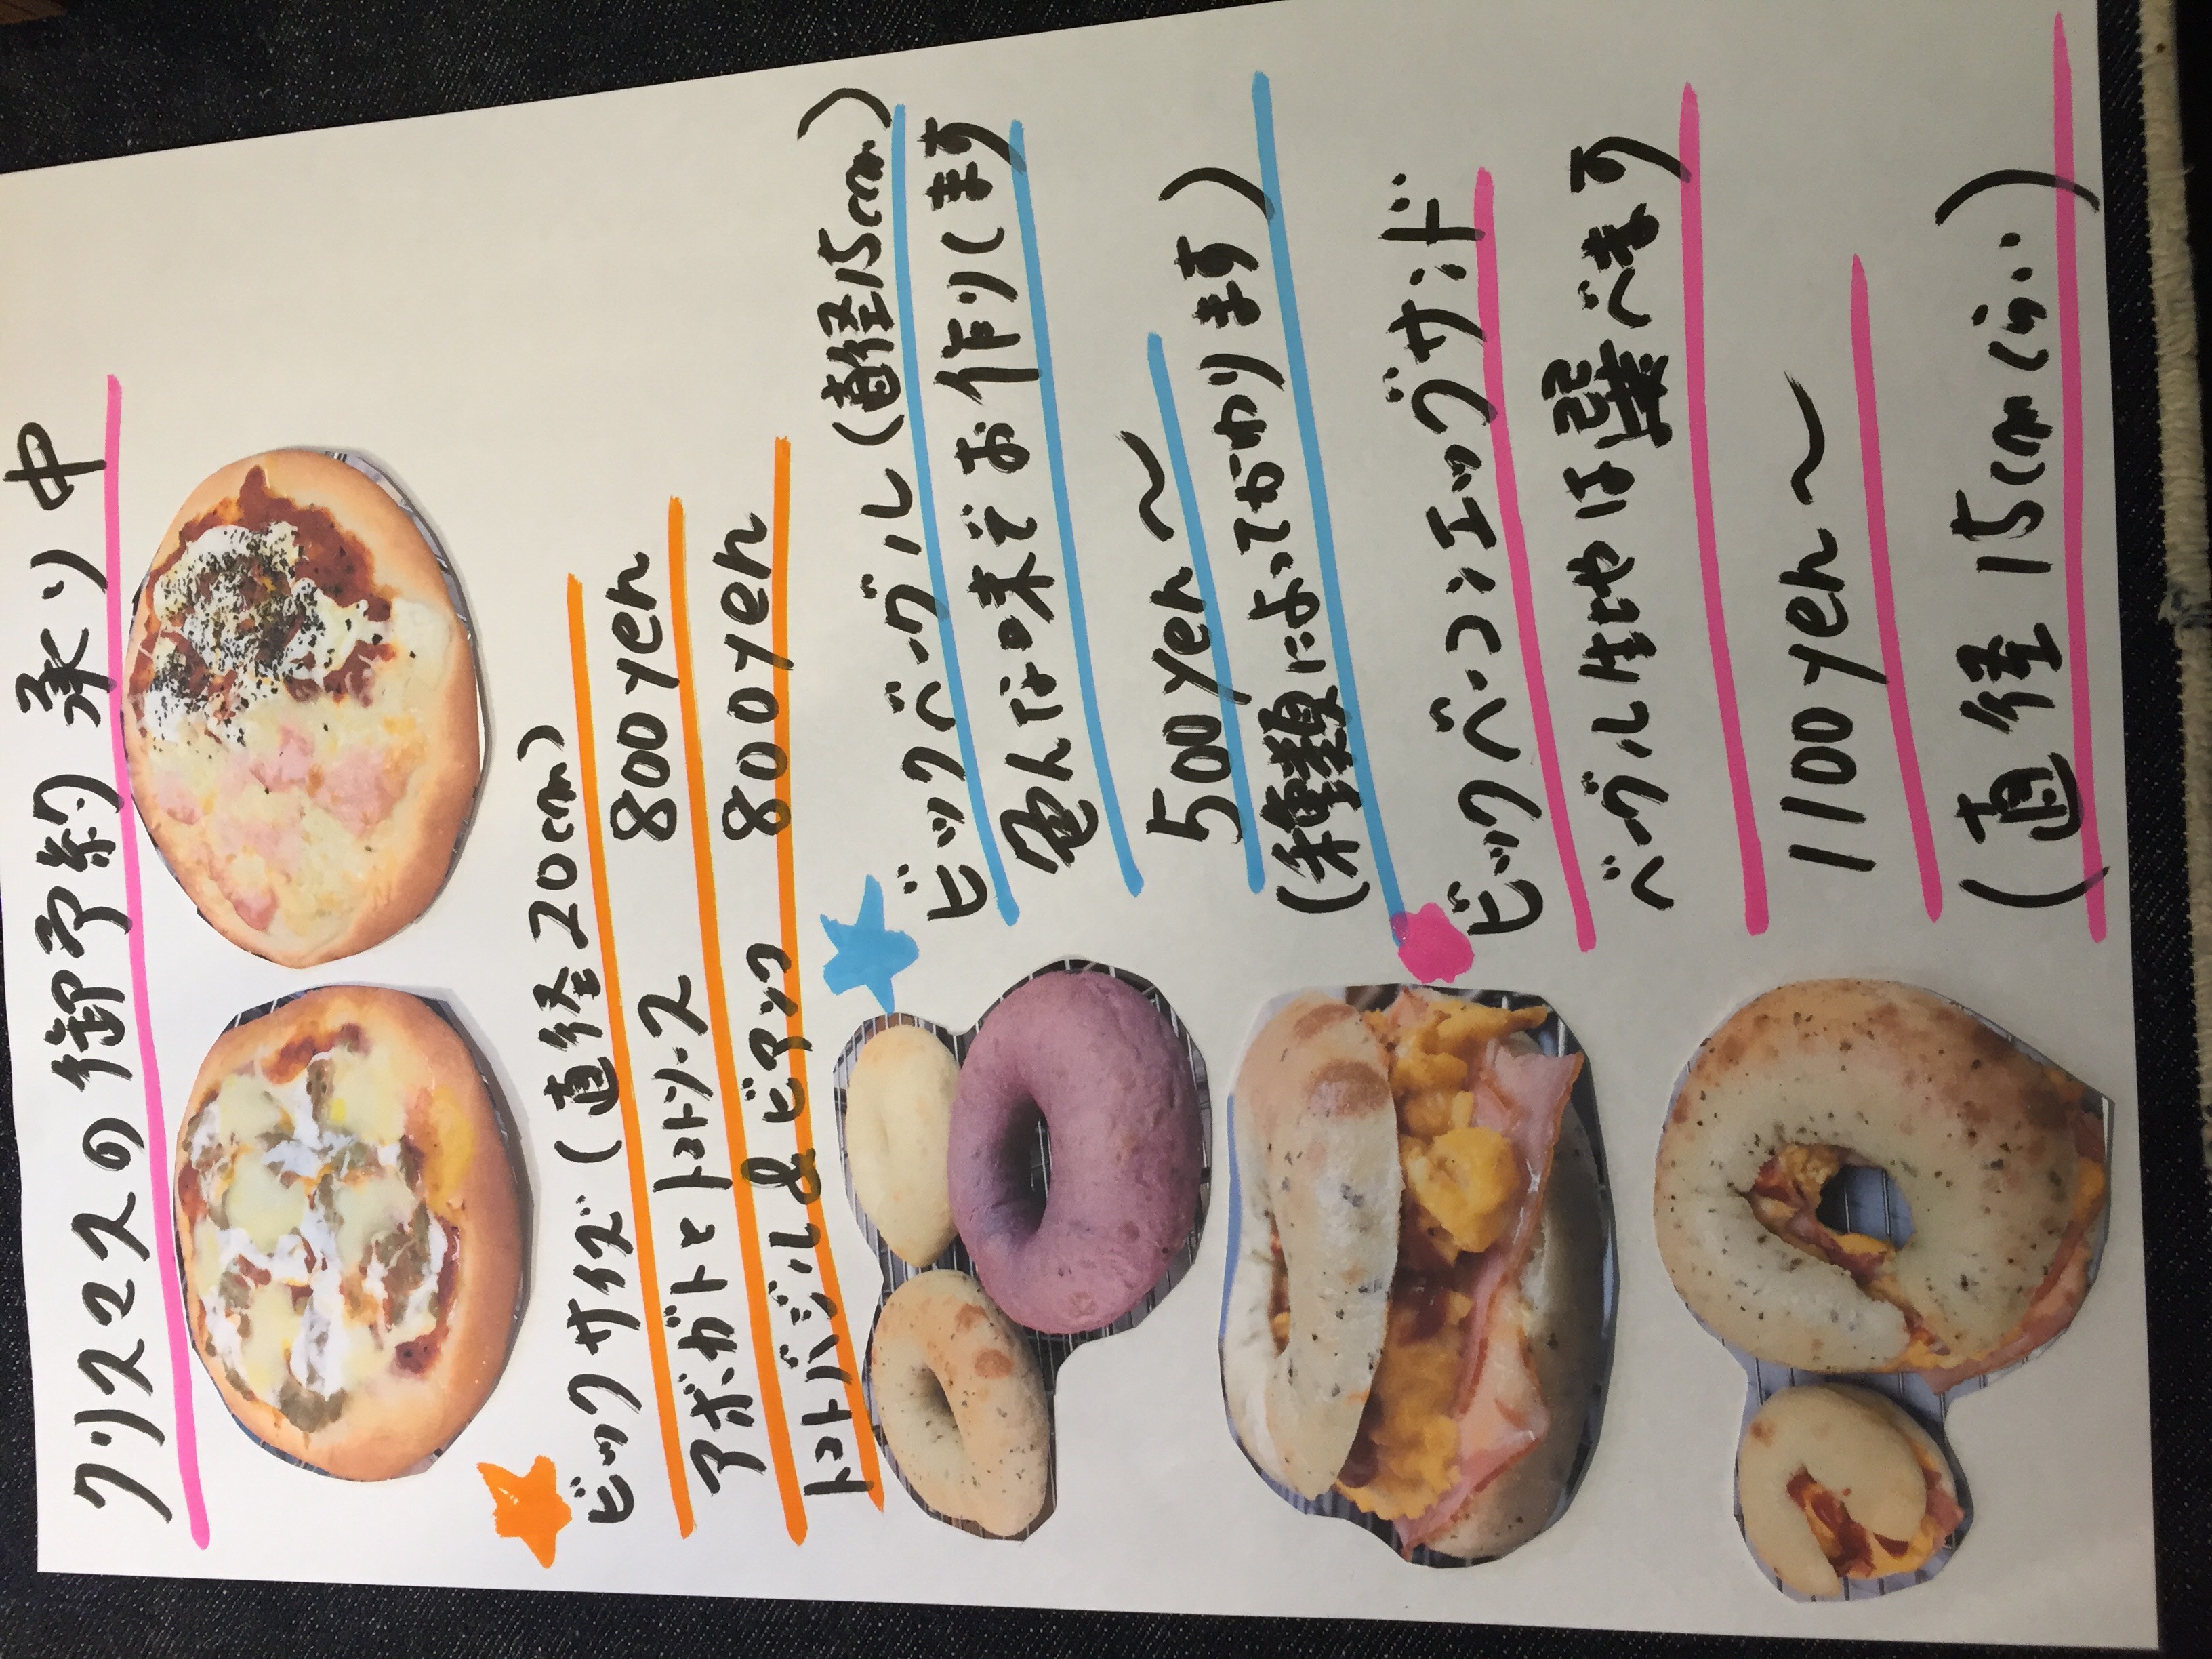 クリスマスの御予約 承り中
ビックサイズ(直径20cm)
アボガドとトマトソース 800yen
トマトバジル&ビアンコ 800yen
ビックベーグル(直径15cm)
色んな味でお作りします
500yen〜
(種類によってかわります)
ビックベーコンエッグサンド
ベーグル生地は選べます
1100yen〜
(直径15cmくらい)